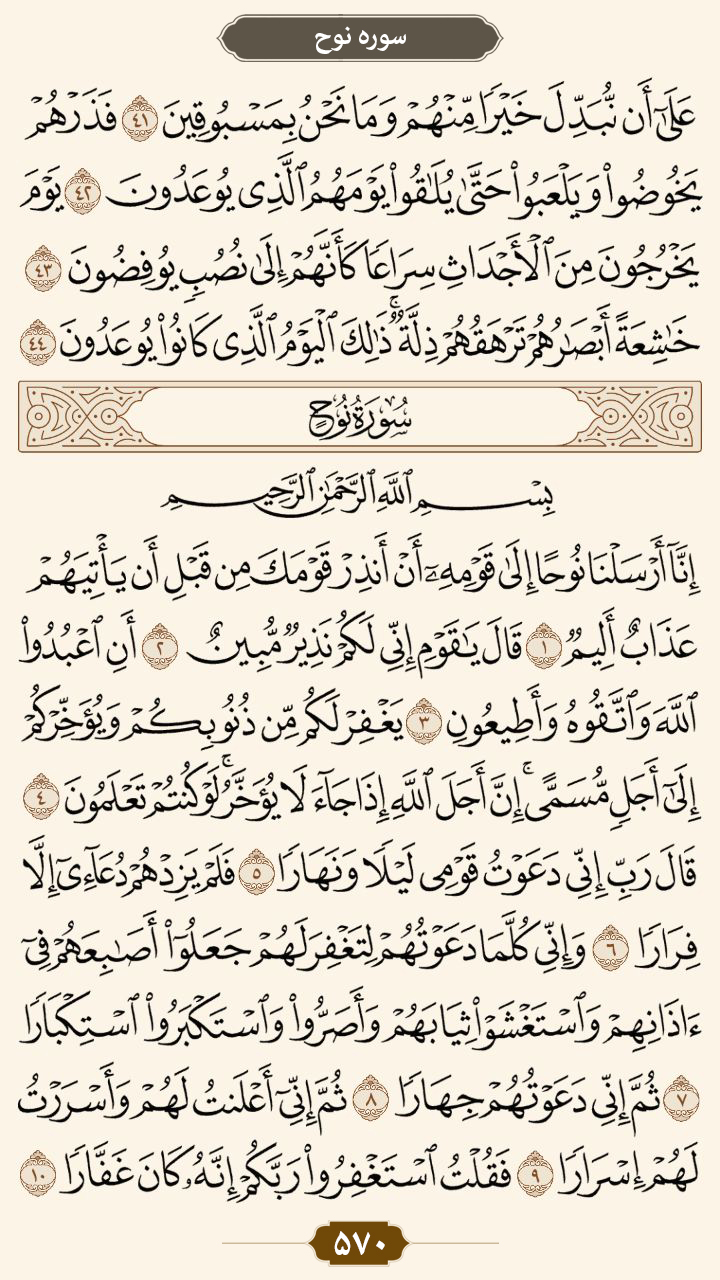 سوره نوح
عَلَىٰٓ أَن نُّبَدِّلَ خَيْرًا مِّنْهُمْ وَمَا نَحْنُ بِمَسْبُوقِينَ ٤١ فَذَرْهُمْ
يَخُوضُوا۟ وَيَلْعَبُوا۟ حَتَّىٰ يُلَـٰقُوا۟ يَوْمَهُمُ ٱلَّذِى يُوعَدُونَ ٤٢ يَوْمَ
يَخْرُجُونَ مِنَ ٱلْأَجْدَاثِ سِرَاعًا كَأَنَّهُمْ إِلَىٰ نُصُبٍ يُوفِضُونَ ٤٣
خَـٰشِعَةً أَبْصَـٰرُهُمْ تَرْهَقُهُمْ ذِلَّةٌ ۚ ذَٰلِكَ ٱلْيَوْمُ ٱلَّذِى كَانُوا۟ يُوعَدُونَ ٤٤
سُورَةُ نُوحٍ
بِسْمِ ٱللَّهِ ٱلرَّحْمَـٰنِ ٱلرَّحِيمِ
إِنَّآ أَرْسَلْنَا نُوحًا إِلَىٰ قَوْمِهِۦٓ أَنْ أَنذِرْ قَوْمَكَ مِن قَبْلِ أَن يَأْتِيَهُمْ
عَذَابٌ أَلِيمٌ ١ قَالَ يَـٰقَوْمِ إِنِّى لَكُمْ نَذِيرٌ مُّبِينٌ ٢ أَنِ ٱعْبُدُوا۟
ٱللَّهَ وَٱتَّقُوهُ وَأَطِيعُونِ ٣ يَغْفِرْ لَكُم مِّن ذُنُوبِكُمْ وَيُؤَخِّرْكُمْ
إِلَىٰٓ أَجَلٍ مُّسَمًّى ۚ إِنَّ أَجَلَ ٱللَّهِ إِذَا جَآءَ لَا يُؤَخَّرُ ۖ لَوْ كُنتُمْ تَعْلَمُونَ ٤
قَالَ رَبِّ إِنِّى دَعَوْتُ قَوْمِى لَيْلًا وَنَهَارًا ٥ فَلَمْ يَزِدْهُمْ دُعَآءِىٓ إِلَّا
فِرَارًا ٦ وَإِنِّى كُلَّمَا دَعَوْتُهُمْ لِتَغْفِرَ لَهُمْ جَعَلُوٓا۟ أَصَـٰبِعَهُمْ فِىٓ
ءَاذَانِهِمْ وَٱسْتَغْشَوْا۟ ثِيَابَهُمْ وَأَصَرُّوا۟ وَٱسْتَكْبَرُوا۟ ٱسْتِكْبَارًا
٧ ثُمَّ إِنِّى دَعَوْتُهُمْ جِهَارًا ٨ ثُمَّ إِنِّىٓ أَعْلَنتُ لَهُمْ وَأَسْرَرْتُ
لَهُمْ إِسْرَارًا ٩ فَقُلْتُ ٱسْتَغْفِرُوا۟ رَبَّكُمْ إِنَّهُۥ كَانَ غَفَّارًا ١٠
۵۷۰